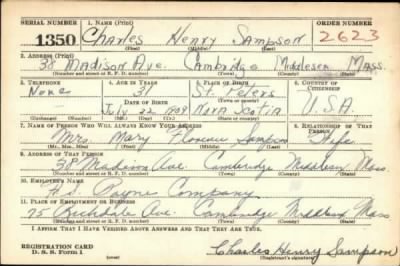 SERIAL NUMBER 1. NAME (Print) ORDER NUMBER
1350 Charles Henry Sampson 2623
(First) (Middle) (Last)
2. ADDRESS (Print)
38 Madison Ave. Cambridge Middlesex Mass.
(Number and street or R. F. D. number) (Town) (County) (State)
3. TELEPHONE 4. AGE IN YEARS 5. PLACE OF BIRTH 6. COUNTRY OF CITIZENSHIP
None 31 St. Peters
DATE OF BIRTH (Town or county)
July 22 1909 Nova Scotia U.S.A.
(Exchange) (Number) (Mo.) (Day) (Yr.) (State or country)
7. NAME OF PERSON WHO WILL ALWAYS KNOW YOUR ADDRESS 8. RELATIONSHIP OF THAT PERSON
Mrs. Mary Sampson Wife
(Mr., Mrs., Miss) (First) (Middle) (Last)
9. ADDRESS OF THAT PERSON
38 Madison Ave. Cambridge Middlesex Mass.
(Number and street or R. F. D. number) (Town) (County) (State)
10. EMPLOYER'S NAME
Payne Company
11. PLACE OF EMPLOYMENT OR BUSINESS
75 Ave. Cambridge Middlesex Mass
(Number and street or R. F. D. number) (Town) (County) (State)
I AFFIRM THAT I HAVE VERIFIED ABOVE ANSWERS AND THAT THEY ARE TRUE.
REGISTRATION CARD
D. S. S. Form 1 (over) Charles Henry Sampson
(Registrant's signature)